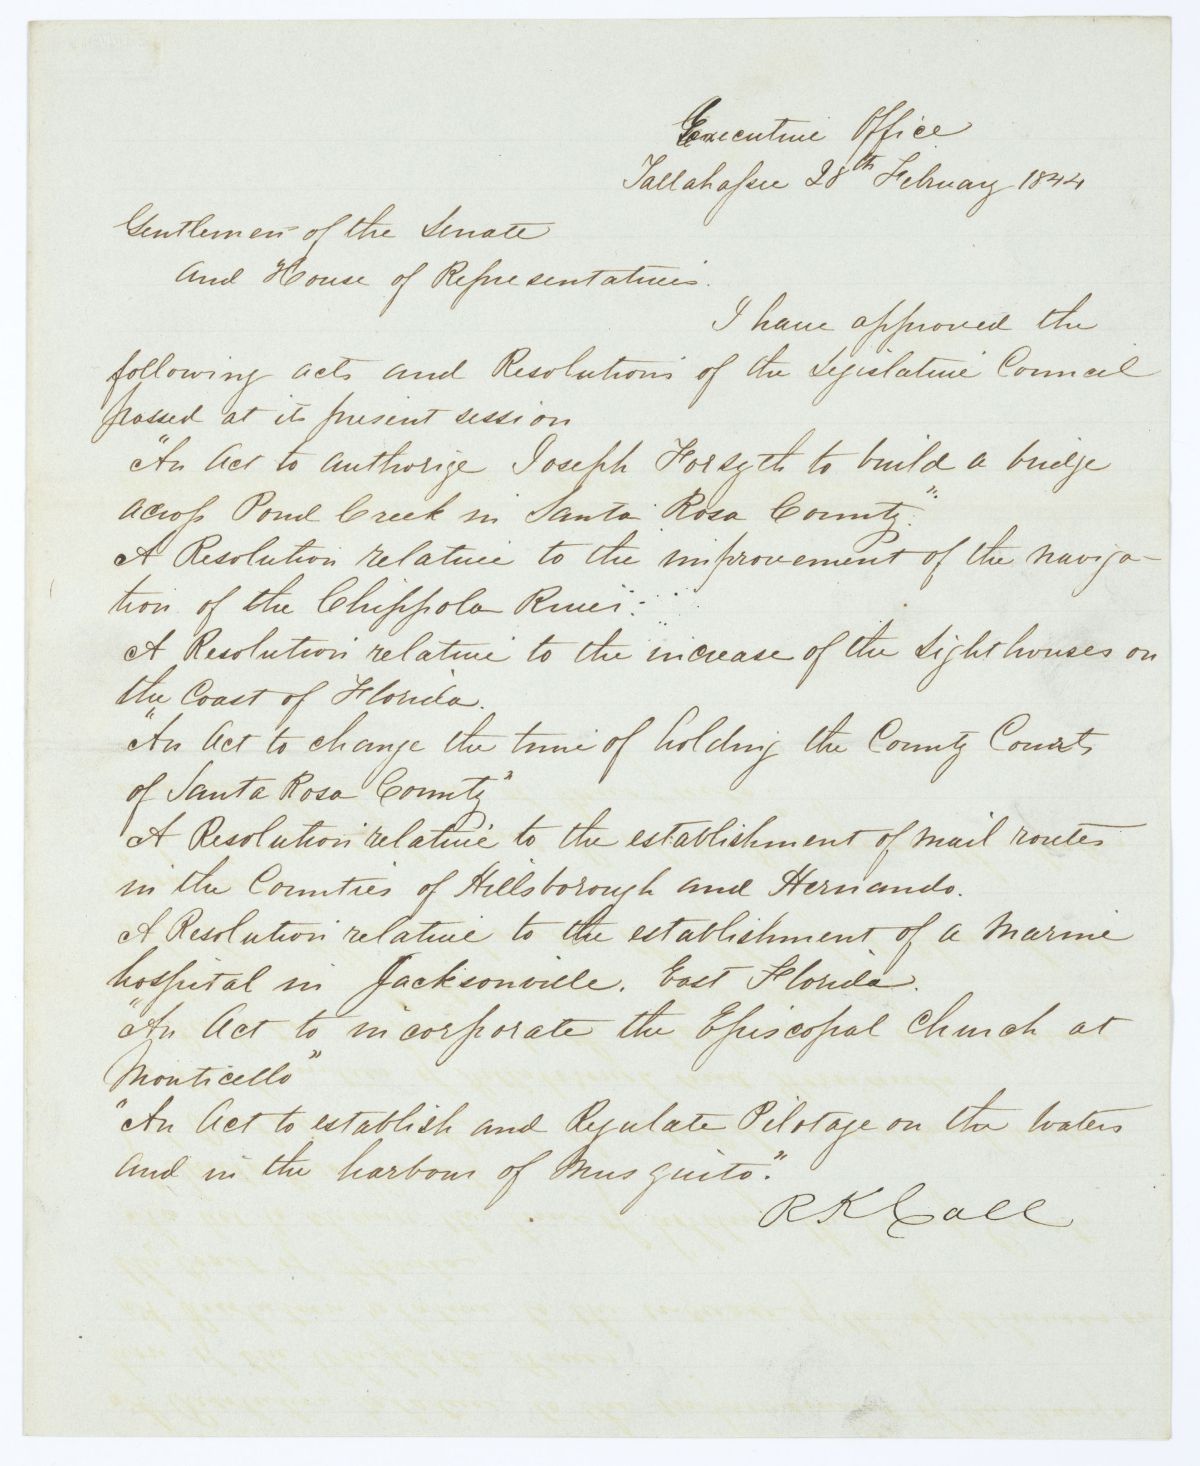 Executive Office
Tallahassee 28th February 1844
Gentlemen of the Senate
and House of Representatives.
I have approved the
following acts and Resolutions of the Legislative Council
passed at its present session
"An Act to authorize Joseph Forsyth to build a bridge
across Pond Creek in Santa Rosa County".
A Resolution relative to the improvement of the naviga-
tion of the Chippola River.
A Resolution relative to the increase of the Lighthouses on
the Coast of Florida.
"An Act to change the time of holding the County Courts
of Santa Rosa County"
A Resolution relative to the establishment of mail routes
in the Counties of Hillsborough and Hernando.
A Resolution relative to the establishment of a Marine
hospital in Jacksonville. East Florida.
"An Act to incorporate the Episcopal Church at
Monticello"
"An Act to establish and Regulate Pilotage on the waters
and in the harbour of Musquito."
R K Call